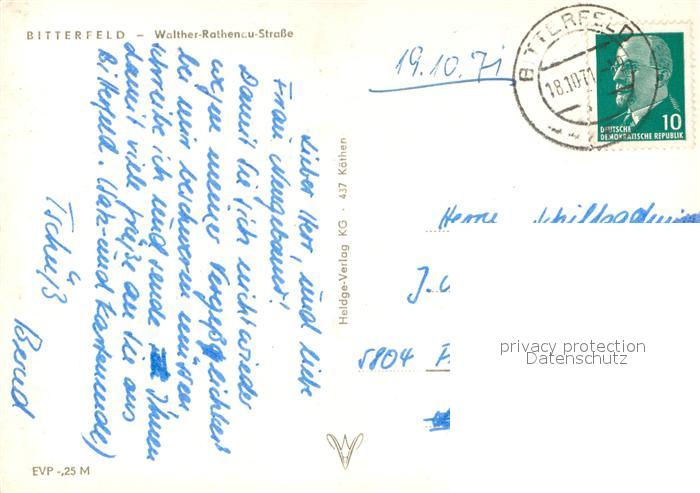 BITTERFELD – Walther-Rathenau-Straße
19.10.71
BITTERFELD
18.10.71
10
DEUTSCHE
DEMOKRATISCHE REPUBLIK
Lieber Herr, und liebe
Frau!
Damit Sie sich nicht wieder
wegen meiner Vergeßlichkeit
bei mir beschweren müssen
schreibe ich und sende Ihnen
damit viele Grüße an Sie aus
Bitterfeld. (Salz- und Kartenende)
Tschüß
Bernd
Heldge-Verlag KG · 437 Köthen
Herrn
J.
5804
privacy protection
Datenschutz
EVP -,25 M